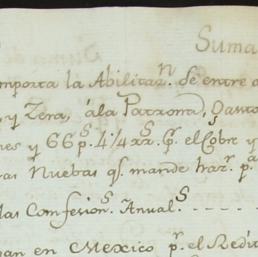 Suma
mporta la Abilitaz.n de entre
y Zera, âla Patrona, Santo
nes y 66p.s 4¼ rr.s p.r el Cobre y
as Nuebas q.e mande haz.r p.a
las Comfesion.s Anual.s - - - -
an en Mexico p.r el Redi